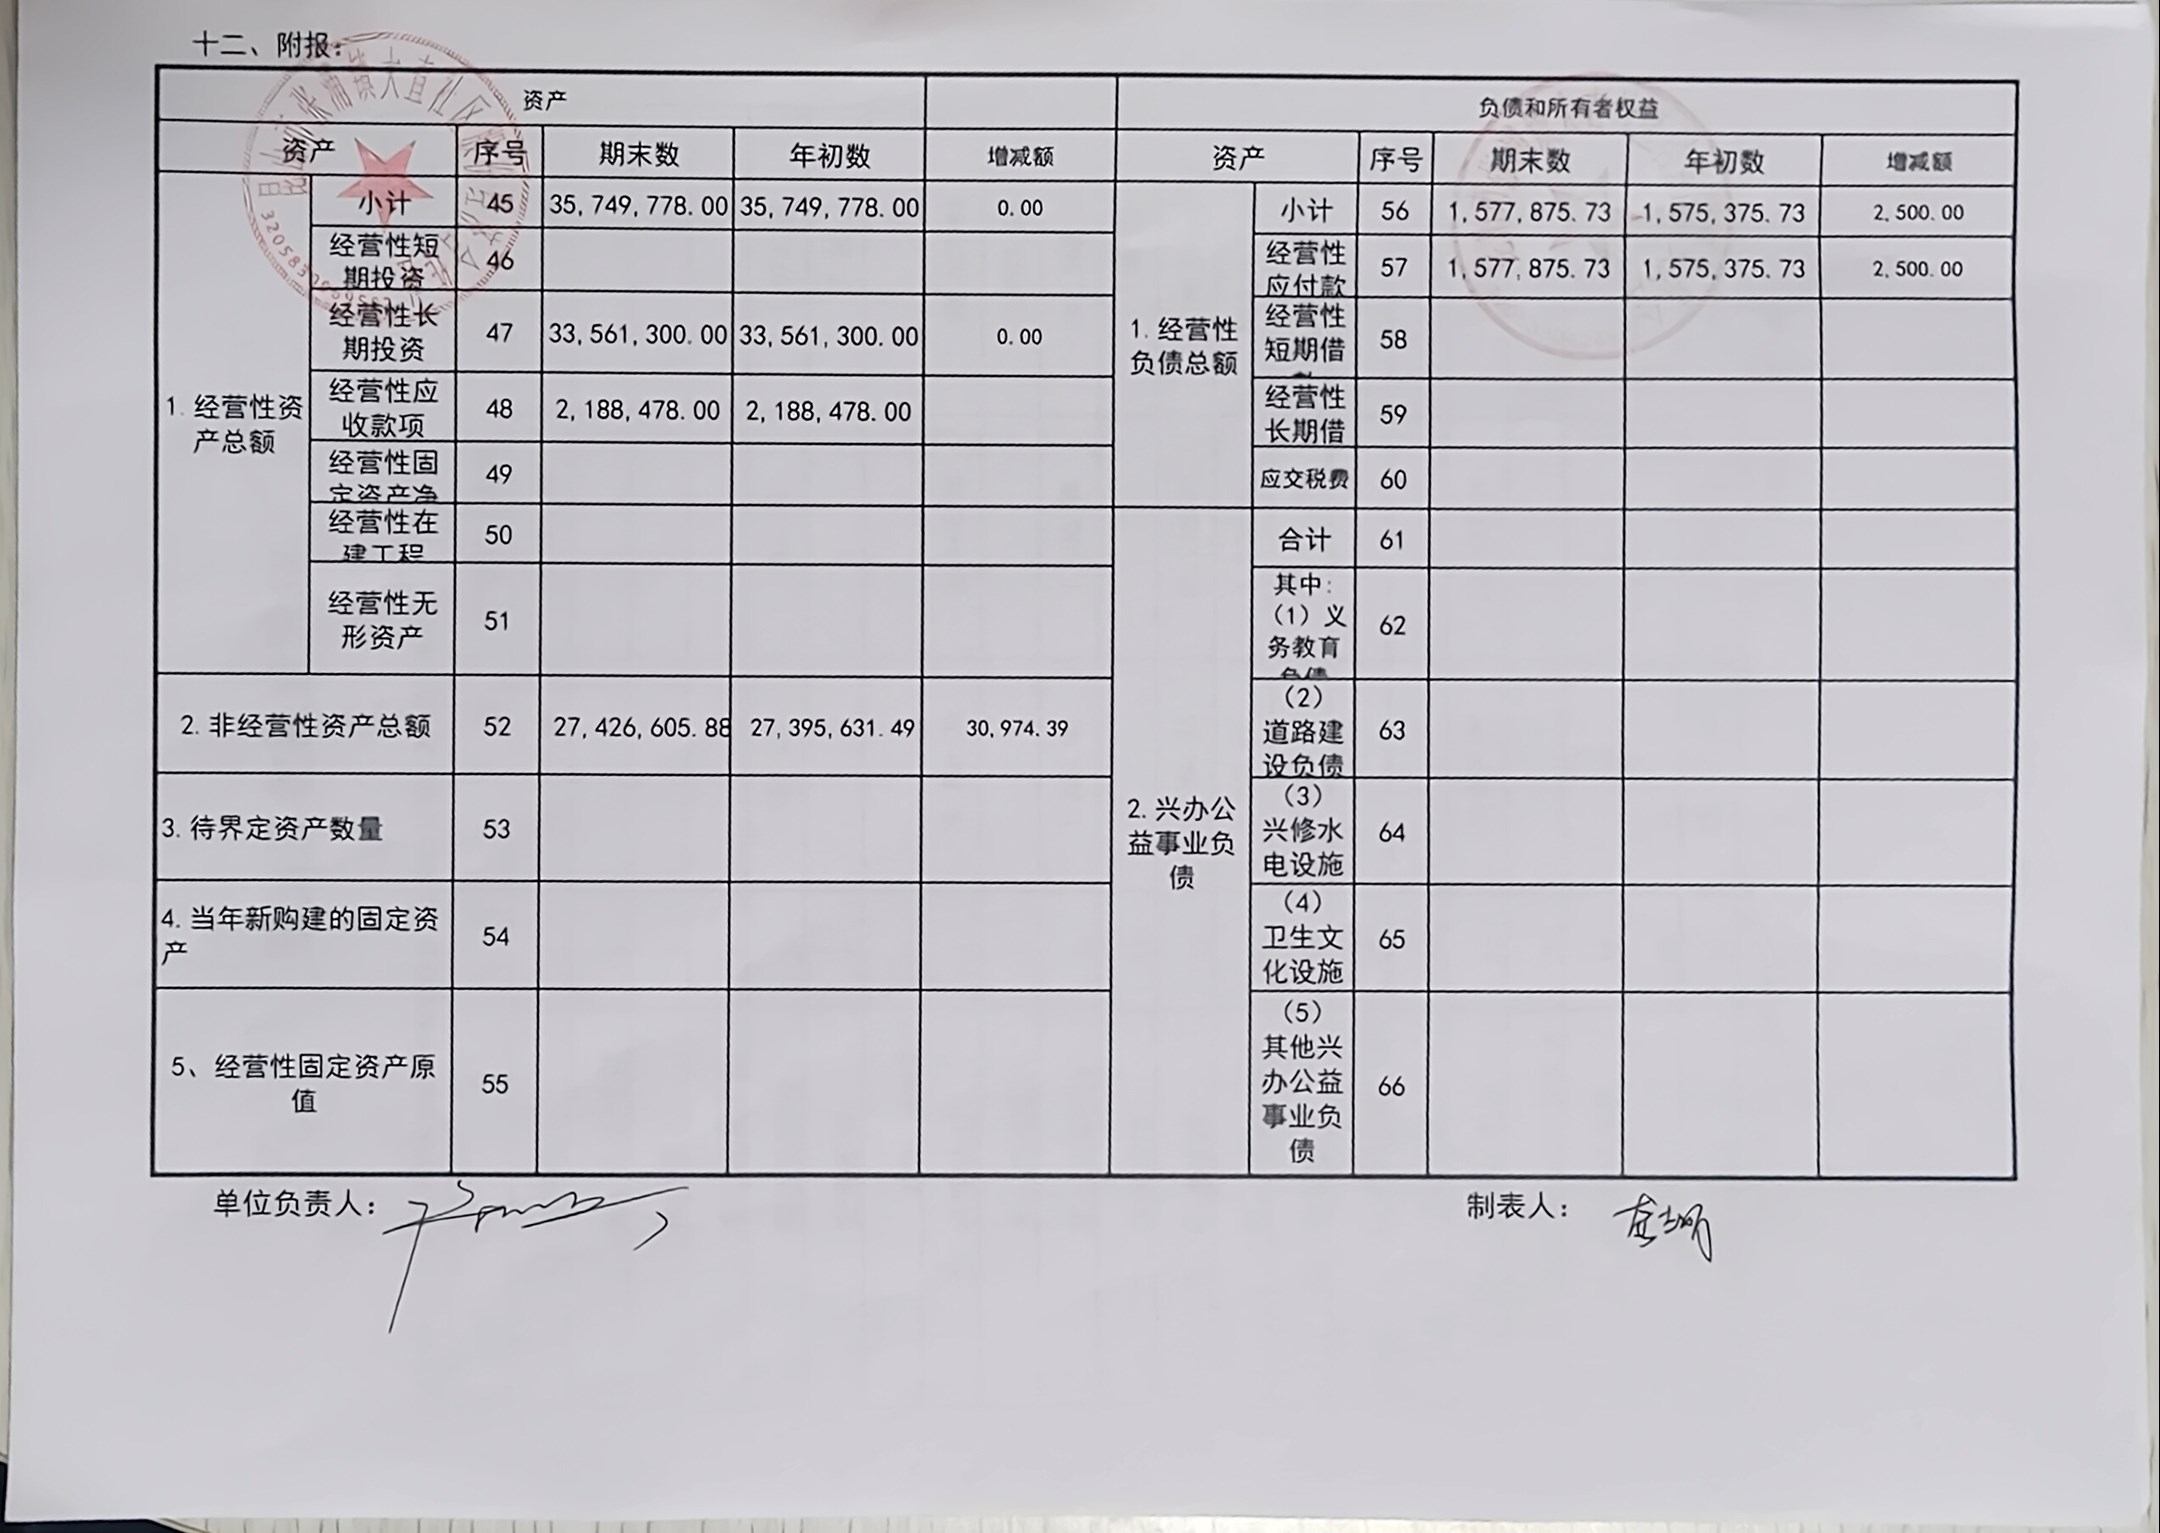 十二、附报:
资产 负债和所有者权益
资产 序号 期末数 年初数 增减额 资产 序号 期末数 年初数 增减额
1.经营性资产总额
小计 45 35,749,778.00 35,749,778.00 0.00
经营性短期投资 46
经营性长期投资 47 33,561,300.00 33,561,300.00 0.00
经营性应收款项 48 2,188,478.00 2,188,478.00
经营性固定资产净 49
经营性在建工程 50
经营性无形资产 51
2.非经营性资产总额 52 27,426,605.88 27,395,631.49 30,974.39
3.待界定资产数量 53
4.当年新购建的固定资产 54
5、经营性固定资产原值 55
1.经营性负债总额
小计 56 1,577,875.73 1,575,375.73 2,500.00
经营性应付款 57 1,577,875.73 1,575,375.73 2,500.00
经营性短期借 58
经营性长期借 59
应交税费 60
2.兴办公益事业负债
合计 61
其中:（1）义务教育负债 62
（2）道路建设负债 63
（3）兴修水电设施 64
（4）卫生文化设施 65
（5）其他兴办公益事业负债 66
单位负责人: 制表人: